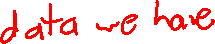 data we have